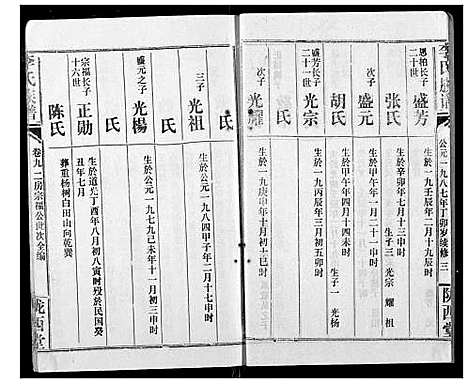 李氏族譜
公元一九八七年丁卯岁续修
三
陇西堂
思柏长子
二十世
盛芳
生於一九壬辰年二月十九申时
张氏
生於辛卯年七月十三申时
生子三 光宗 耀 祖
次子
盛元
生於甲午年一月二十一申时
胡氏
生於甲午年四月十四未时
生子一 光杨
盛芳长子
二十一世
光宗
生於一九丙辰年三月初五卯时
氏
次子
光耀
生於一九庚申年十月初十巳时
氏
三子
光祖
生於公元一九八四甲子年二月十七申时
氏
盛元之子
光楊
生於公元一九七九己未年十一月初三申时
氏
宗福长子
十六世
正勋
生於道光丁酉年八月初八寅时 殁於民国癸
丑年七月
葬重杨树白田山向乾巽
陈氏
李氏族譜
卷九 二房宗福公世次全编
陇西堂